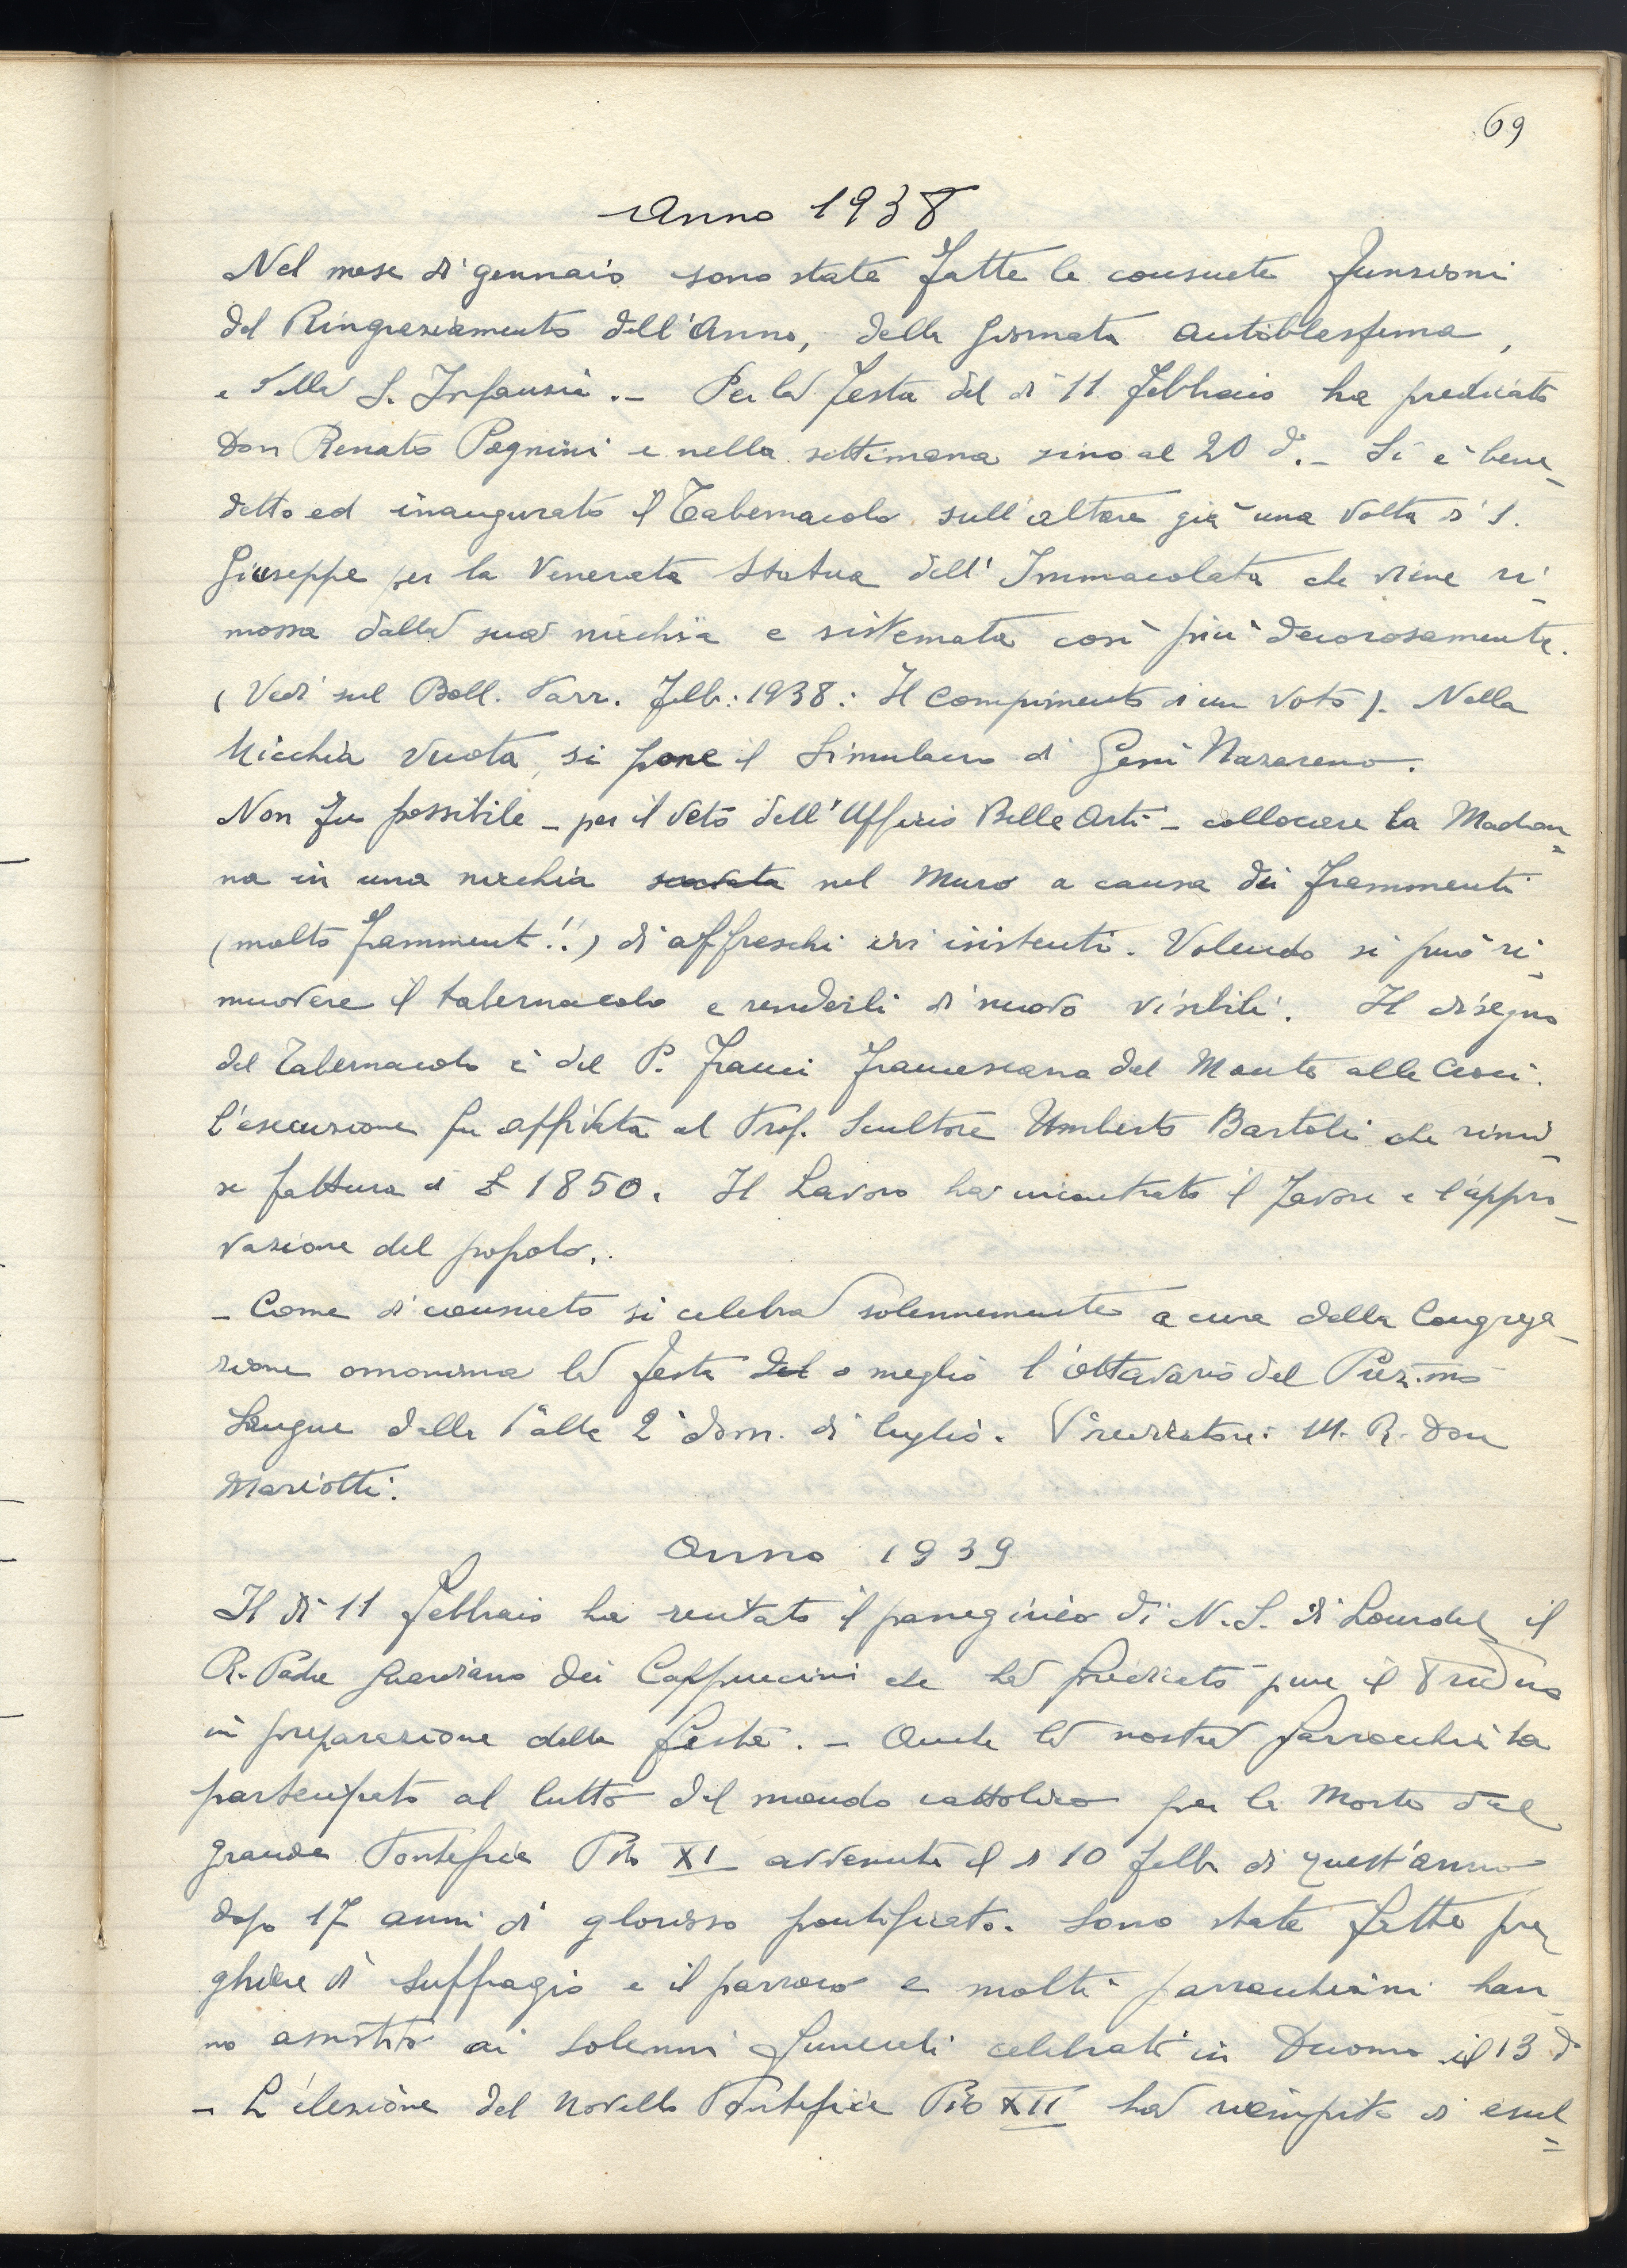 69
Anno 1938
Nel mese di gennaio sono state fatte le consuete funzioni
del Ringraziamento dell'Anno, della giornata antiblasfema,
e della S. Infanzia. - Per la festa del dì 11 febbraio ha predicato
Don Renato Pagnini e nella settimana sino al 20 d. - Si è bene-
detto ed inaugurato il Tabernacolo sull'altare già una volta di S.
Giuseppe per la Venerata Statua dell'Immacolata che viene ri-
mossa dalla sua nicchia e sistemata così più decorosamente.
(Vedi sul Boll. Parr. Febb: 1938: Il Compimento di un Voto). Nella
Nicchia vuota, si pone il Simulacro di Gesù Nazareno.
Non fu possibile - per il veto dell'Ufficio Belle Arti - collocare la Madon=
na in una nicchia scavata nel Muro a causa dei frammenti
(molto framment.!!) di affreschi ivi esistenti. Volendo si può ri-
muovere il tabernacolo e renderli di nuovo visibili. Il disegno
del Tabernacolo è del P. Franci francescano del Monte alle Croci.
L'esecuzione fu affidata al Prof. Scultore Umberto Bartoli che rimi-
se fattura di £ 1850. Il Lavoro ha incontrato il favore e l'appro-
vazione del popolo.
- Come di consueto si celebra solennemente a cura della Congrega-
zione omonima la festa del o meglio l'ottavario del Prez.mo
Sangue dalla 1ª alla 2ª dom. di luglio. Predicatore: M. R. Don
Mariotti.
Anno 1939
Il dì 11 Febbraio ha recitato il panegirico di N. S. di Lourdes il
R. Padre Guardiano dei Cappuccini che ha predicato pure il Triduo
in preparazione della festa. - Anche la nostra Parrocchia ha
partecipato al lutto del mondo cattolico per la Morte del
grande Pontefice Pio XI avvenuta il dì 10 febb. di quest'anno
dopo 17 anni di glorioso pontificato. Sono state fatte pre-
ghiere di suffragio e il parroco e molti parrocchiani han-
no assistito ai solenni funerali celebrati in Duomo il 13 d
- L'elezione del novello Pontefice Pio XII ha riempito di esul=